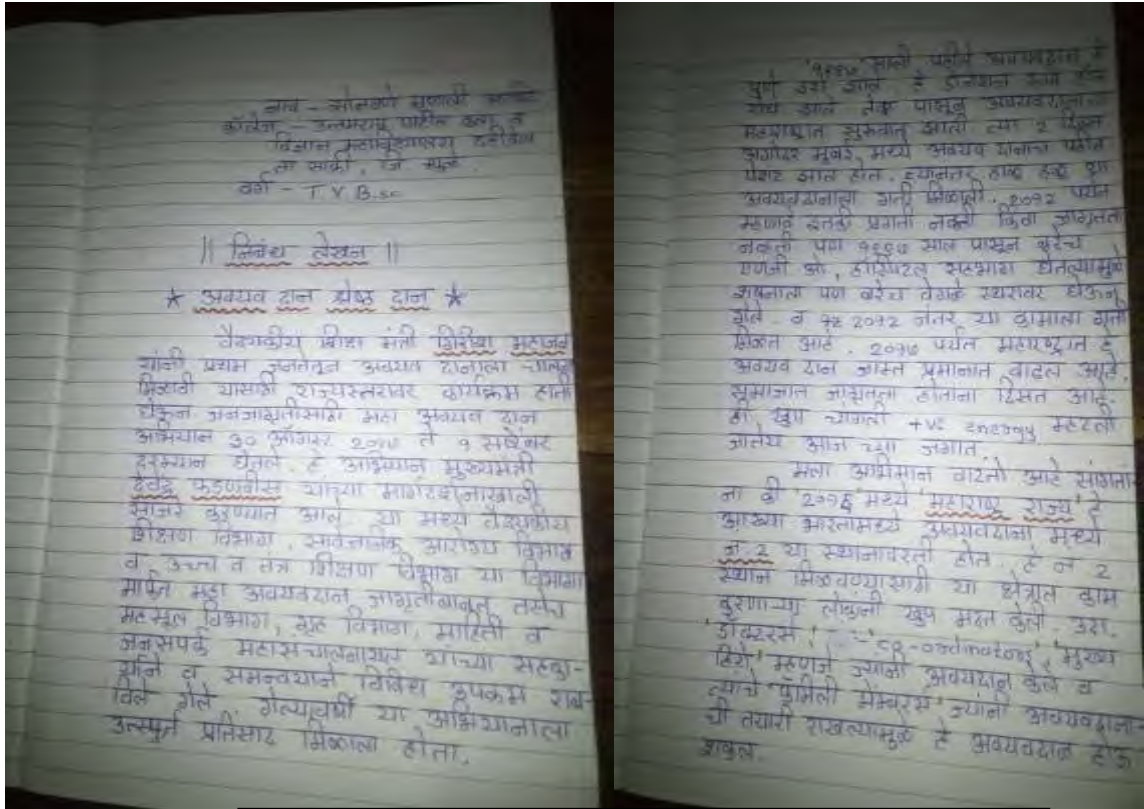 नाव - सोनवणे
कॉलेज - उत्तमराव पाटील कला व
विज्ञान महाविद्यालय दहिवेल
ता साक्री, जि धुळे.
वर्ग - T.Y.B.sc
|| निबंध लेखन ||
★ अवयव दान श्रेष्ठ दान ★
वैद्यकीय शिक्षा मंत्री गिरीष महाजन
यांनी प्रथम जनतेतून अवयव दानाला चालना
मिळावी यासाठी राज्यस्तरावर कार्यक्रम हाती
घेऊन जनजागृतीसाठी महा अवयव दान
अभियान ३० ऑगस्ट २०१७ ते १ सप्टेंबर
दरम्यान घेतले. हे अभियान मुख्यमंत्री
देवेंद्र फडणवीस यांच्या मार्गदर्शनाखाली
साजर करण्यात आले. या मध्ये वैद्यकीय
शिक्षण विभाग, सार्वजनिक आरोग्य विभाग
व उच्च व तंत्र शिक्षण विभाग या विभागा
मार्फत महा अवयवदान जागृतीबाबत तसेच
महसूल विभाग, गृह विभाग, माहिती व
जनसंपर्क महासंचालनालय यांच्या सहका-
र्याने व समन्वयाने विविध उपक्रम राब-
विले गेले. गेल्यावर्षी या अभियानाला
उत्स्फुर्त प्रतिसाद मिळाला होता.
१९९७ साली पहीले अवयवदान हे
पुणे इथे झाल. हे डोनेशन
झाले तेव्हा पासून अवयवदानाला
महाराष्ट्रात सुरुवात झाली त्या २ दिवस
अगोदर मुंबई मध्ये अवयव दानाचा पहील
पेशंट झाल होत. त्यानंतर हळू हळू या
अवयवदानाला गती मिळाली. २०१२ पर्यंत
म्हणावे इतकी प्रगती नव्हती किंवा जागृतता
नव्हती पण १९९७ साल पासून बरेच
एनजी ओ, हॉस्पिटल सहभाग घेतल्यामुळे
पण बरेच वेगळे स्थरावर घेऊन
गेले. व २०१२ नंतर या कामाला गती
मिळत आहे. २०१७ पर्यंत महाराष्ट्रात हे
अवयव दान जास्त प्रमाणात वाढल आहे.
समाजात जागृतता होताना दिसत आहे.
ही खुप चांगली +ve energy म्हटली
जातेय आज च्या जगात.
मला अभिमान वाटतो आहे सांगतां
ना की '२०१६' मध्ये 'महाराष्ट्र राज्य' हे
आख्या भारतामध्ये अवयवदाना मध्ये
नं. २ या स्थानावरती होत. हे नं २
स्थान मिळवण्यासाठी या क्षेत्रात काम
करणाऱ्या लोकांनी खुप मदत केली. उदा.
'डॉक्टरस' 'co-ordinators', 'मुख्य
हिरो' म्हणजे ज्यांनी अवयवदान केले व
त्यांचे 'फॅमिली मेंबरस' ज्यांनी अवयवदाना-
ची तयारी राखल्यामुळे हे अवयवदान होऊ
शकल.